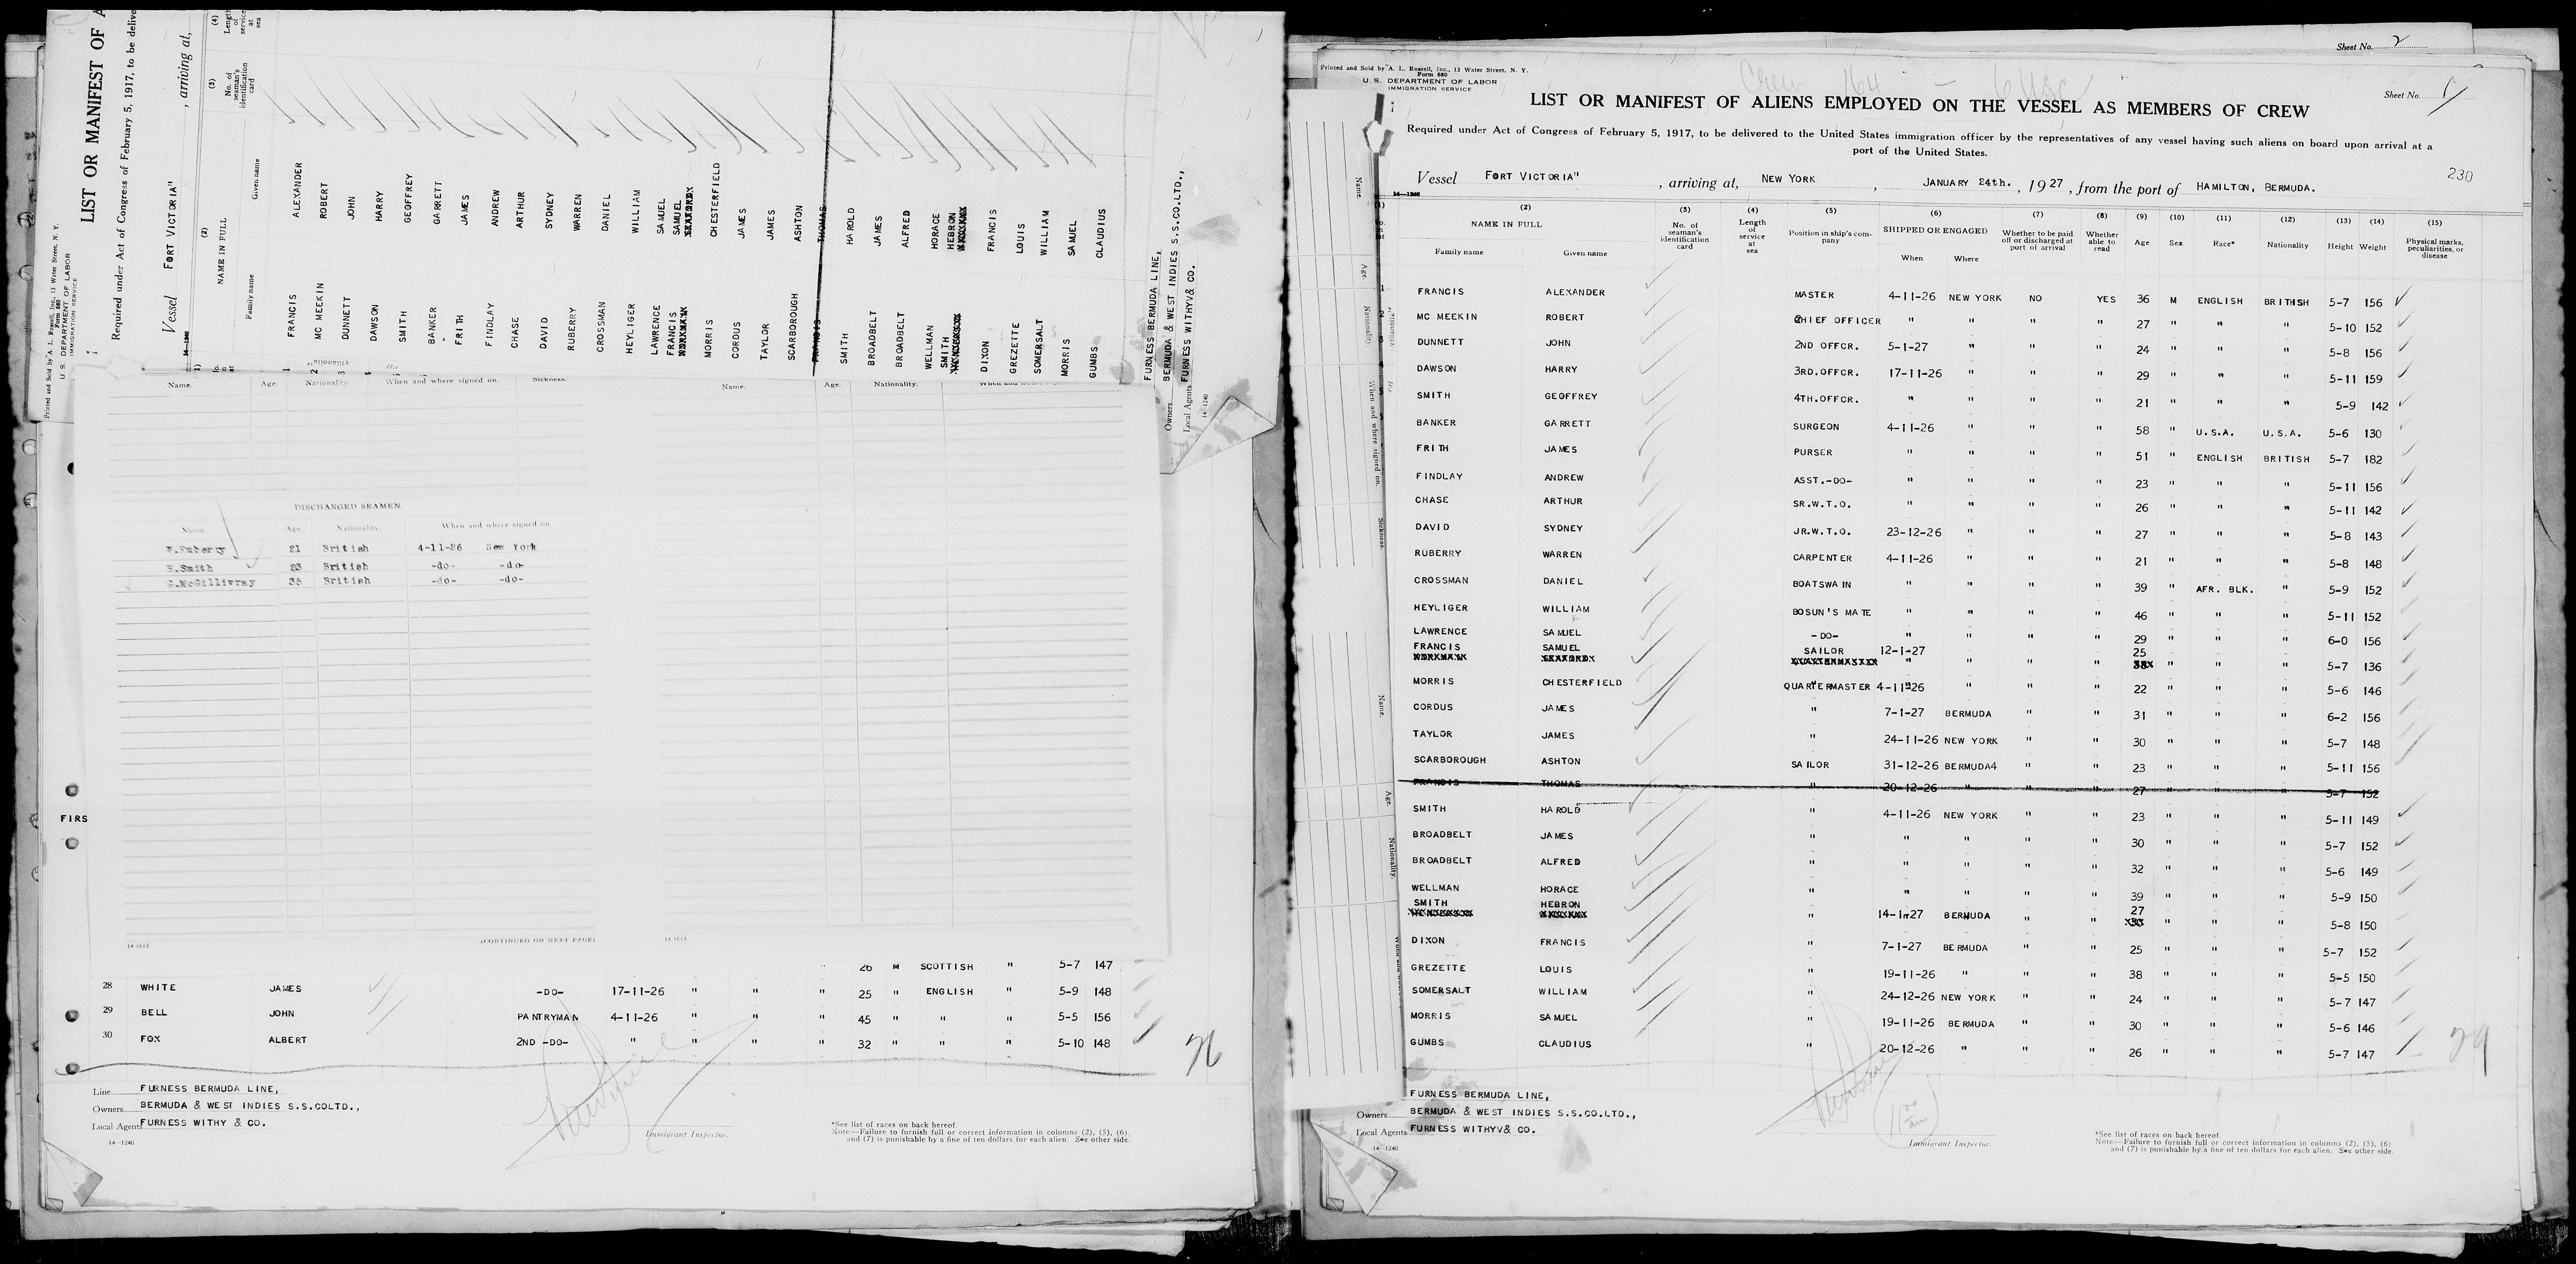 Printed and Sold by A. L. Russell, Inc., 13 Water Street, N. Y.
Form 680
U. S. DEPARTMENT OF LABOR
IMMIGRATION SERVICE
LIST OR MANIFEST OF A
Required under Act of Congress of February 5, 1917, to be delive
Vessel FORT VICTORIA" , arriving at,
14-1240
(1) (2) (3) (4)
NAME IN FULL No. of seaman's identification card Length of service at sea
Family name Given name
1 FRANCIS ALEXANDER
2 MC MEEKIN ROBERT
3 DUNNETT JOHN
4 DAWSON HARRY
SMITH GEOFFREY
BANKER GARRETT
FRITH JAMES
FINDLAY ANDREW
CHASE ARTHUR
DAVID SYDNEY
RUBERRY WARREN
CROSSMAN DANIEL
HEYLIGER WILLIAM
LAWRENCE SAMUEL
FRANCIS SAMUEL
MORRIS CHESTERFIELD
CORDUS JAMES
TAYLOR JAMES
SCARBOROUGH ASHTON
FRANCIS THOMAS
SMITH HAROLD
BROADBELT JAMES
BROADBELT ALFRED
WELLMAN HORACE
SMITH HEBRON
DIXON FRANCIS
GREZETTE LOUIS
SOMERSALT WILLIAM
MORRIS SAMUEL
GUMBS CLAUDIUS
FURNESS BERMUDA LINE,
Owners BERMUDA & WEST INDIES S.S.CO.LTD.,
Local Agents FURNESS WITHYV& CO.
14-1240
Name. Age. Nationality. When and where signed on. Sickness. Name. Age. Nationality. When and where signed on.
DISCHARGED SEAMEN.
Name. Age. Nationality. When and where signed on.
W.Ruberry 21 British 4-11-26 New York
H.Smith 23 British -do- -do-
G.McGillivray 35 British -do- -do-
FIRS
14-1613 (CONTINUED ON NEXT PAGE) 14-1613
26 M SCOTTISH " 5-7 147
28 WHITE JAMES -DO- 17-11-26 " " " 25 " ENGLISH " 5-9 148
29 BELL JOHN PANTRYMAN 4-11-26 " " " 45 " " " 5-5 156
30 FOX ALBERT 2ND -DO- " " " " 32 " " " 5-10 148
Line FURNESS BERMUDA LINE,
Owners BERMUDA & WEST INDIES S.S.COLTD.,
Local Agents FURNESS WITHY & CO.
14-1240
Immigrant Inspector.
*See list of races on back hereof.
Note.—Failure to furnish full or correct information in columns (2), (5), (6)
and (7) is punishable by a fine of ten dollars for each alien. See other side.
Sheet No. 2
Printed and Sold by A. L. Russell, Inc., 13 Water Street, N. Y.
Form 680
U. S. DEPARTMENT OF LABOR
IMMIGRATION SERVICE
Crew 164 - 6 USC
Sheet No. 1
LIST OR MANIFEST OF ALIENS EMPLOYED ON THE VESSEL AS MEMBERS OF CREW
Required under Act of Congress of February 5, 1917, to be delivered to the United States immigration officer by the representatives of any vessel having such aliens on board upon arrival at a
port of the United States.
230
Vessel FORT VICTORIA" , arriving at, NEW YORK , JANUARY 24th. , 1927 , from the port of HAMILTON, BERMUDA.
14-1240
(1) (2) (3) (4) (5) (6) (7) (8) (9) (10) (11) (12) (13) (14) (15)
NAME IN FULL No. of seaman's identification card Length of service at sea Position in ship's company SHIPPED OR ENGAGED Whether to be paid off or discharged at port of arrival Whether able to read Age Sex Race* Nationality Height Weight Physical marks, peculiarities, or disease
Family name Given name When Where
FRANCIS ALEXANDER MASTER 4-11-26 NEW YORK NO YES 36 M ENGLISH BRITIHSH 5-7 156
MC MEEKIN ROBERT CHIEF OFFICER " " " " 27 " " " 5-10 152
DUNNETT JOHN 2ND OFFCR. 5-1-27 " " " 24 " " " 5-8 156
DAWSON HARRY 3RD.OFFCR. 17-11-26 " " " 29 " " " 5-11 159
SMITH GEOFFREY 4TH.OFFCR. " " " " 21 " " " 5-9 142
BANKER GARRETT SURGEON 4-11-26 " " " 58 " U.S.A. U.S.A. 5-6 130
FRITH JAMES PURSER " " " " 51 " ENGLISH BRITISH 5-7 182
FINDLAY ANDREW ASST.-DO- " " " " 23 " " " 5-11 156
CHASE ARTHUR SR.W.T.O. " " " " 26 " " " 5-11 142
DAVID SYDNEY JR.W.T.O. 23-12-26 " " " 27 " " " 5-8 143
RUBERRY WARREN CARPENTER 4-11-26 " " " 21 " " " 5-8 148
CROSSMAN DANIEL BOATSWAIN " " " " 39 " AFR. BLK. " 5-9 152
HEYLIGER WILLIAM BOSUN'S MATE " " " " 46 " " " 5-11 152
LAWRENCE SAMUEL -DO- " " " " 29 " " " 6-0 156
FRANCIS SAMUEL SAILOR 12-1-27 " " " 25 " " " 5-7 136
MORRIS CHESTERFIELD QUARTERMASTER 4-11-26 " " " 22 " " " 5-6 146
CORDUS JAMES " 7-1-27 BERMUDA " " 31 " " " 6-2 156
TAYLOR JAMES " 24-11-26 NEW YORK " " 30 " " " 5-7 148
SCARBOROUGH ASHTON SAILOR 31-12-26 BERMUDA4 " " 23 " " " 5-11 156
FRANCIS THOMAS " 20-12-26 " " " 27 " " " 5-7 152
SMITH HAROLD " 4-11-26 NEW YORK " " 23 " " " 5-11 149
BROADBELT JAMES " " " " " 30 " " " 5-7 152
BROADBELT ALFRED " " " " " 32 " " " 5-6 149
WELLMAN HORACE " " " " " 39 " " " 5-9 150
SMITH HEBRON " 14-1-27 BERMUDA " " 27 " " " 5-8 150
DIXON FRANCIS " 7-1-27 BERMUDA " " 25 " " " 5-7 152
GREZETTE LOUIS " 19-11-26 " " " 38 " " " 5-5 150
SOMERSALT WILLIAM " 24-12-26 NEW YORK " " 24 " " " 5-7 147
MORRIS SAMUEL " 19-11-26 BERMUDA " " 30 " " " 5-6 146
GUMBS CLAUDIUS " 20-12-26 " " " 26 " " " 5-7 147
29
FURNESS BERMUDA LINE,
Owners BERMUDA & WEST INDIES S.S.CO.LTD.,
Local Agents FURNESS WITHYV& CO.
14-1240
Immigrant Inspector.
*See list of races on back hereof.
Note.—Failure to furnish full or correct information in columns (2), (5), (6)
and (7) is punishable by a fine of ten dollars for each alien. See other side.